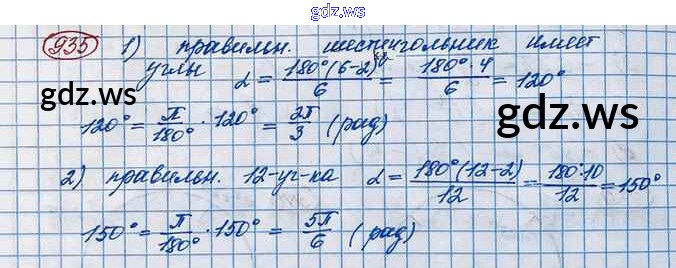 gdz.ws
935 1) правильн. шестиугольник имеет
углы α = 180°(6-2)/6 = 180°·4/6 = 120°
gdz.ws
gdz.ws
120° = π/180° · 120° = 2π/3 (рад)
2) правильн. 12-уг-ка α = 180°(12-2)/12 = 180·10/12 = 150°
150° = π/180° · 150° = 5π/6 (рад)
gdz.ws